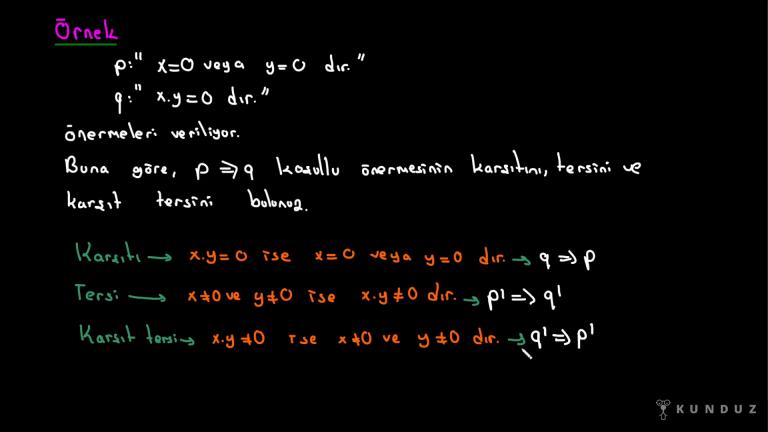 Örnek
p:" x=0 veya y=0 dır."
q:" x.y=0 dır."
önermeleri veriliyor.
Buna göre, p ⇒ q koşullu önermesinin karşıtını, tersini ve
karşıt tersini bulunuz.
Karşıtı → x.y=0 ise x=0 veya y=0 dır. → q ⇒ p
Tersi → x≠0 ve y≠0 ise x.y≠0 dır. → p' ⇒ q'
Karşıt tersi → x.y≠0 ise x≠0 ve y≠0 dır. → q' ⇒ p'
KUNDUZ